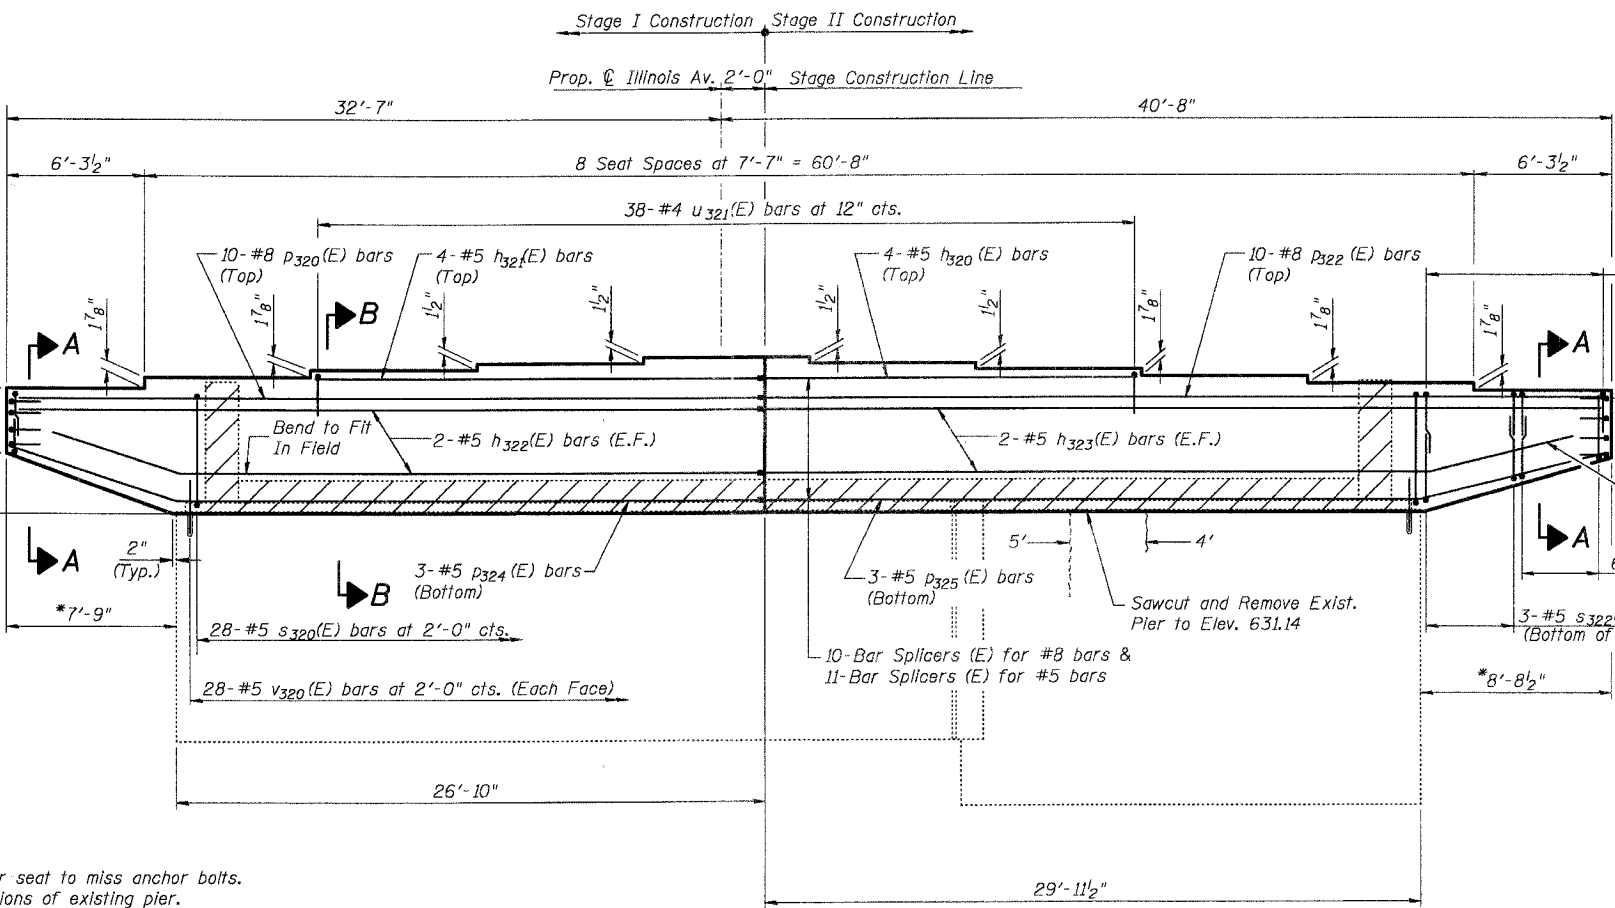 Stage I Construction Stage II Construction
Prop. ℄ Illinois Av. 2'-0" Stage Construction Line
32'-7" 40'-8"
6'-3½" 8 Seat Spaces at 7'-7" = 60'-8" 6'-3½"
38-#4 u321(E) bars at 12" cts.
10-#8 p320(E) bars
(Top)
4-#5 h321(E) bars
(Top)
4-#5 h320(E) bars
(Top)
10-#8 p322(E) bars
(Top)
1⅞" 1⅞" 1½" 1½" 1½" 1½" 1⅞" 1⅞" 1⅞"
A B A
Bend to Fit
In Field
2-#5 h322(E) bars (E.F.)
2-#5 h323(E) bars (E.F.)
A B A
2"
(Typ.)
5' 4'
6
3-#5 p324(E) bars
(Bottom)
3-#5 p325(E) bars
(Bottom)
Sawcut and Remove Exist.
Pier to Elev. 631.14
*7'-9"
28-#5 s320(E) bars at 2'-0" cts.
3-#5 s322
(Bottom of
10-Bar Splicers (E) for #8 bars &
11-Bar Splicers (E) for #5 bars
28-#5 v320(E) bars at 2'-0" cts. (Each Face)
*8'-8½"
26'-10"
r seat to miss anchor bolts.
ions of existing pier.
29'-11½"